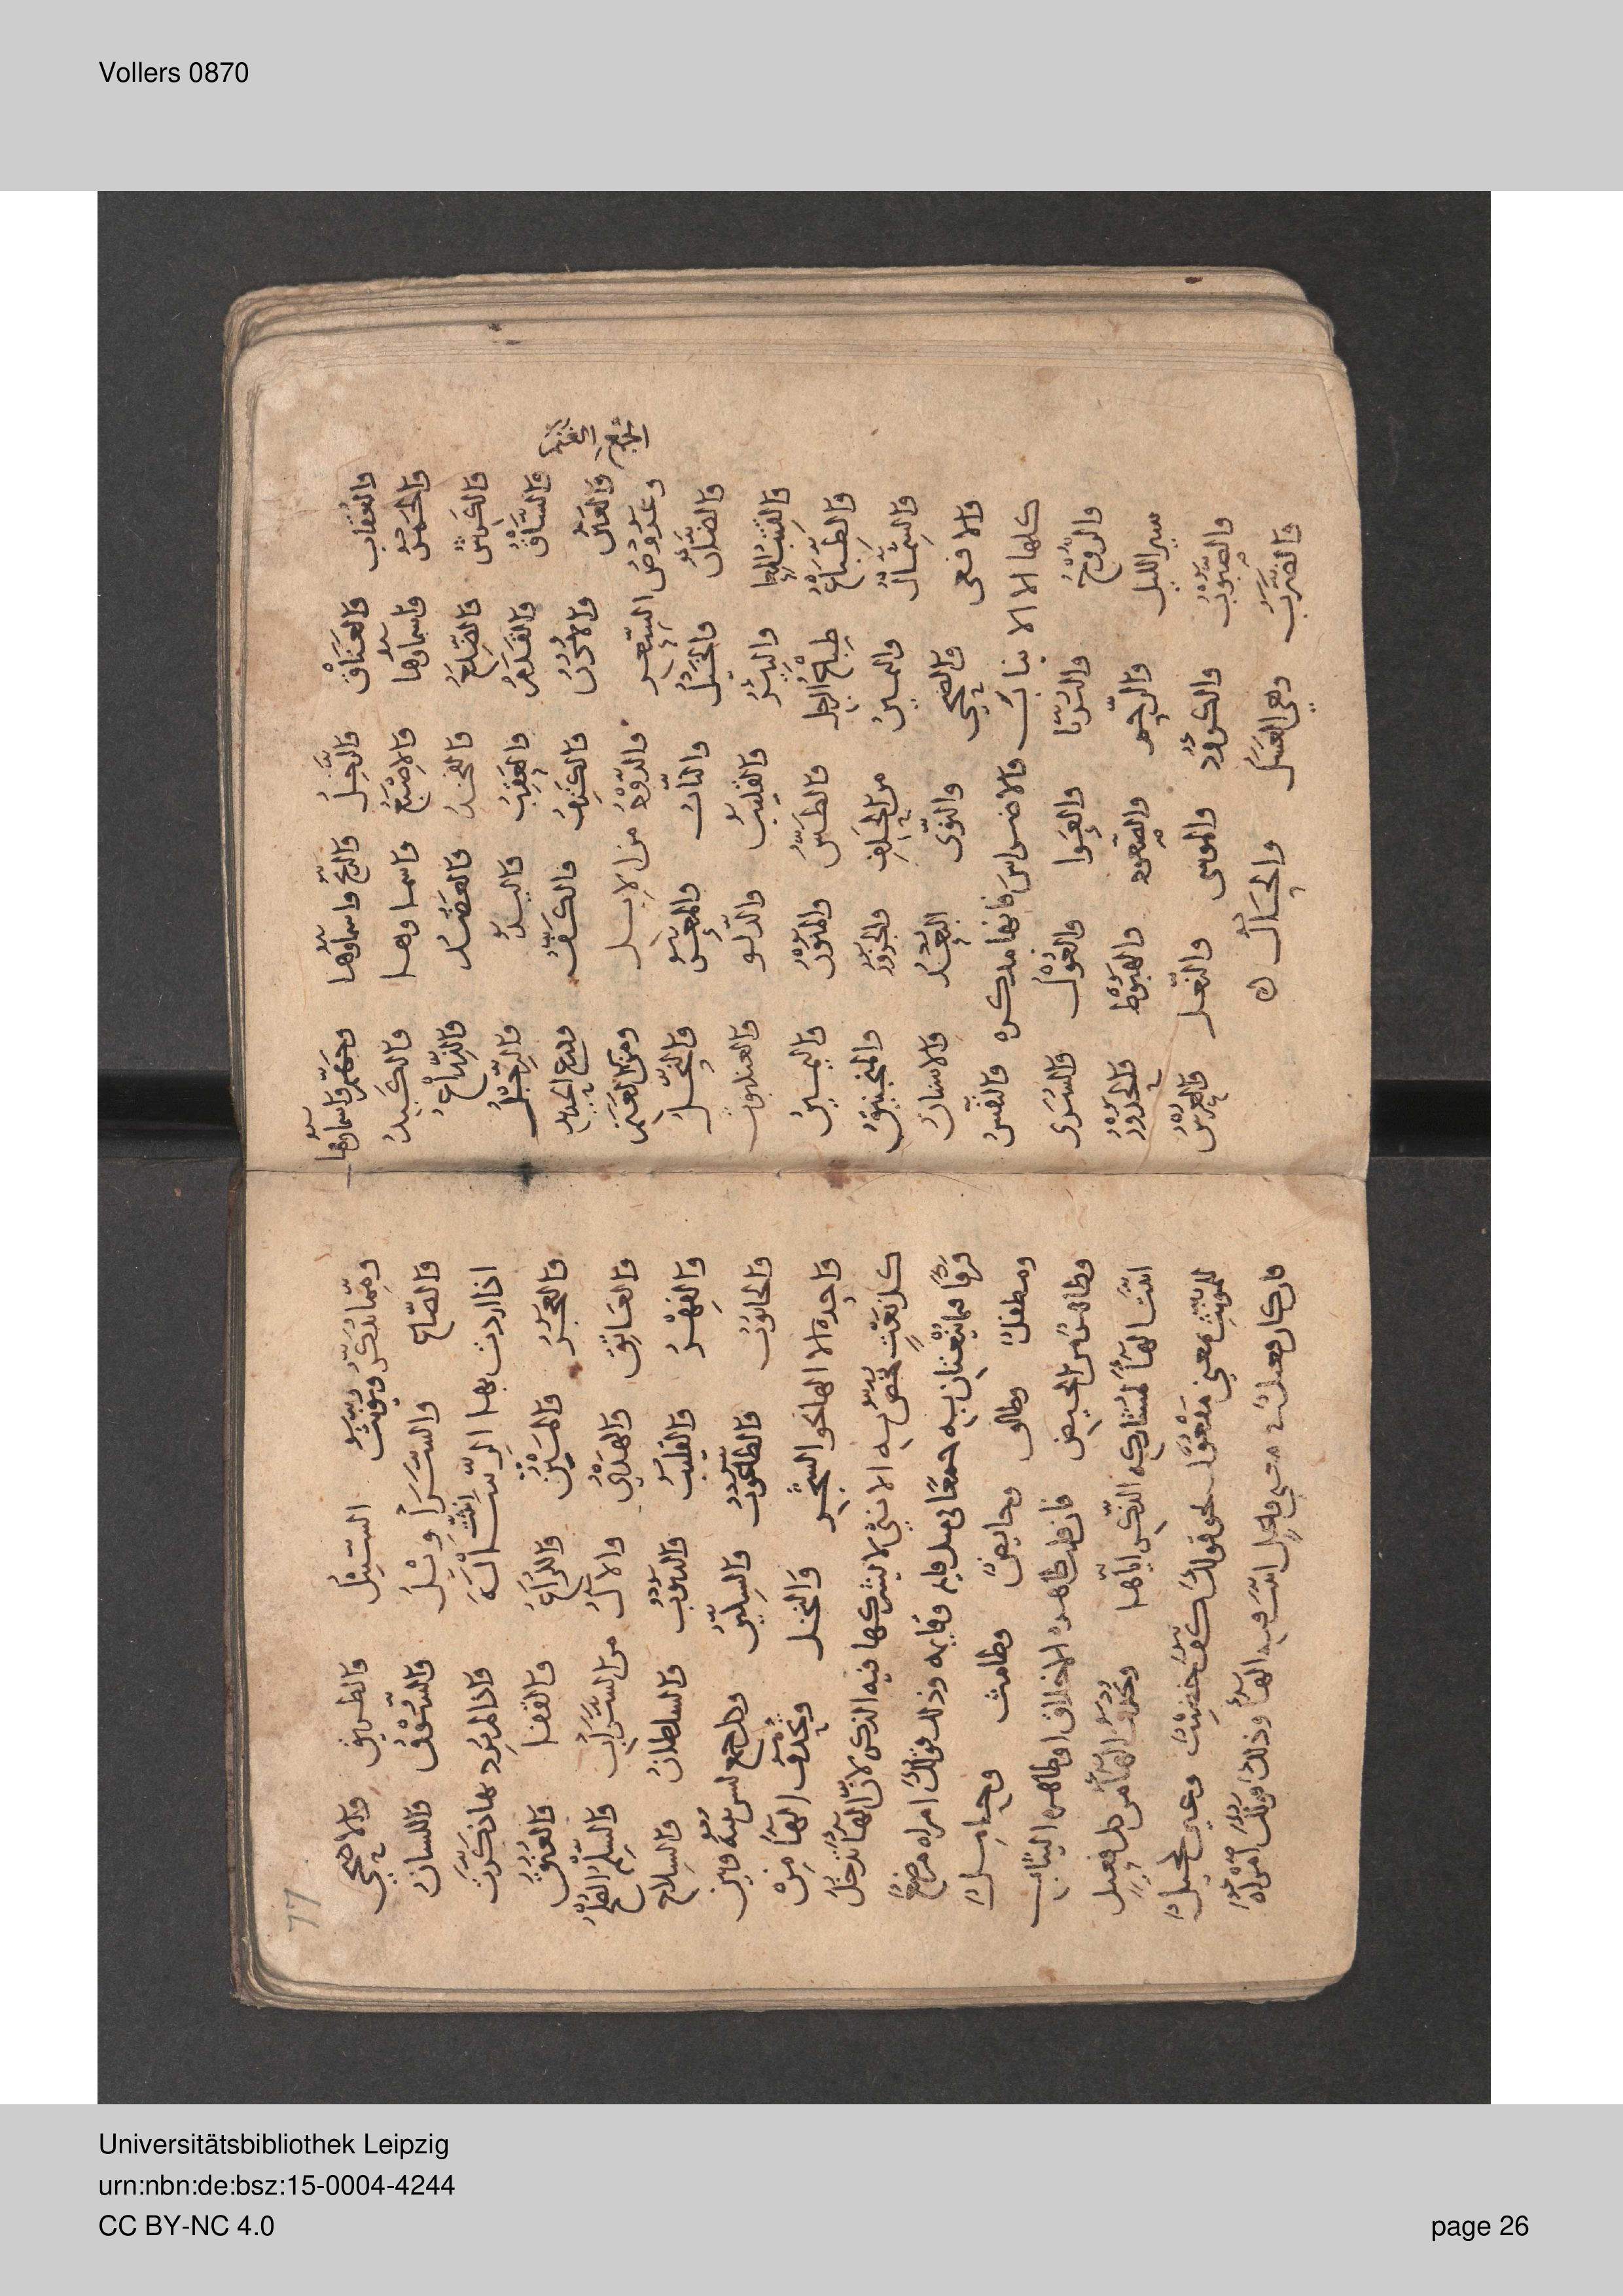 Vollers 0870
والعقاب والعناق والرجل والريح واسماوها وجهنم واسماوها
والخمس واسماوها والاصبع واسماوها والكبد
والكرش والضلع والفخذ والعضد والذراع
والساق والقدم والعقب واليد والرجل
والعين والاذن والكتف والكف ودرع الحديد
وعروض الشعر والذود من الابل ومن الغنم
والضان والخيل والناب والمعز والنحل
والبئر والقليب والدلو والعنكبوت
والطباع طباع الرجل والطس والمنون واليمين
والشمال واليمين من الحلف والجزور والمنجنيق
والافعى والضحى والنوى البعد والاسنان
كلها الا الانياب والاضراس فانها مذكره والنفس
والروح والثريا والعوا والغول والسرى
سير الليل والرحم والصعود والهبوط والحدور
والصبوب والكوود والموسى والنعل والعرس
والضرب وهي العسل والحال
ومما يذكر ويونث السبيل والطريق والاضحى
والصاع والسراويل والسوق واللسان
اذا اردت بها الرسالة انثت واذا لم ترد بها ذكرت
والعجز والمتن والذراع والقفا والعنق
والعاتق والهدي والآل من السراب والسلم الصلح
والفهر والقليب والذنوب والسلطان والسلاح
والحانوت والطاغوت والسكين وكل جمع ليس بينه وبين
واحده الا الها نحو الشجر والنخل وتحذف الها من
كل نعت تختص به الانثى لا يشركها فيه الذكر لان الها تدخل
فرقا فيما ينعتان به جميعا مثل قايم وقايمه وذلك قولك امراة مرضع
ومطفل وطالق وحايض وطامث وحامل
وطاهر من الحيض فان قلت طاهره الاخلاق او طاهره الثياب
اثبت الها لمشاركه الذكر اياها وتحذف الها من كل فعيل
للمونث بمعنى مفعول نحو قولك كف خضيب وعين كحيل
فان كان فعيل بمعنى فاعل اثبت فيه الها وذلك قولك امراة
77
Universitätsbibliothek Leipzig
urn:nbn:de:bsz:15-0004-4244
CC BY-NC 4.0
page 26